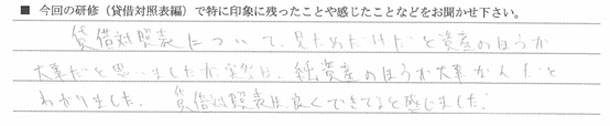 ■ 今回の研修（貸借対照表編）で特に印象に残ったことや感じたことなどをお聞かせ下さい。
貸借対照表について、見ためだけだと資産のほうが
大事だと思いましたが実際は、純資産のほうが大事なんだと
わかりました。 貸借対照表は良くできてると感じました。